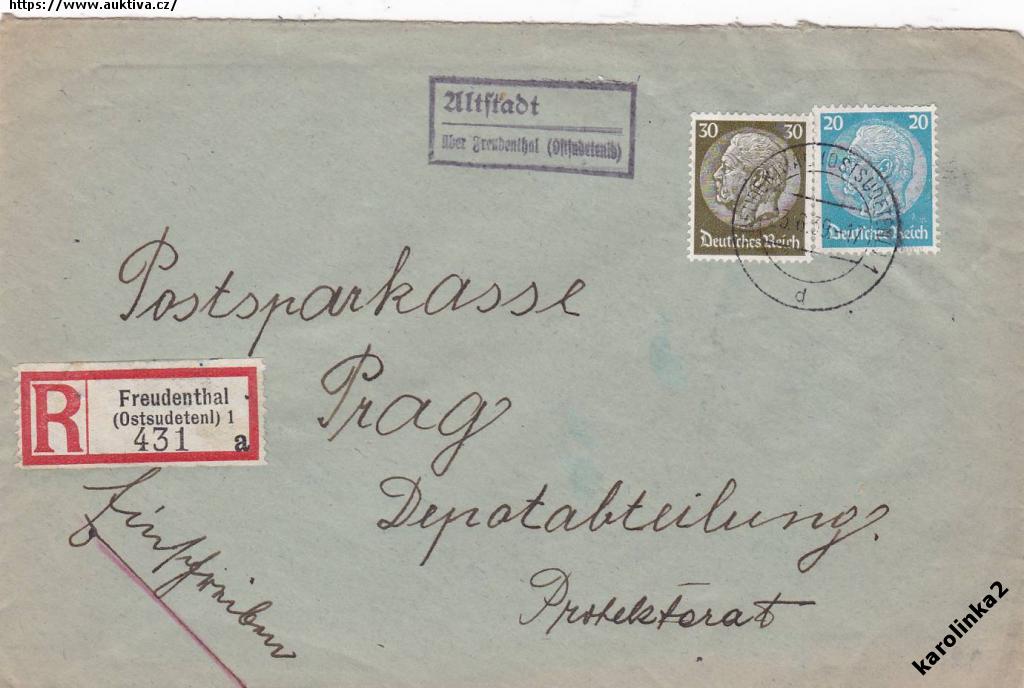 https://www.auktiva.cz/
Altstadt
über Freudenthal (Ostsudetenld)
30 30
Deutsches Reich
20 20
Deutsches Reich
d
Postsparkasse
Prag
Depotabteilung.
Protektorat
R
Freudenthal
(Ostsudetenl) 1
431 a
Einschreiben
karolinka2